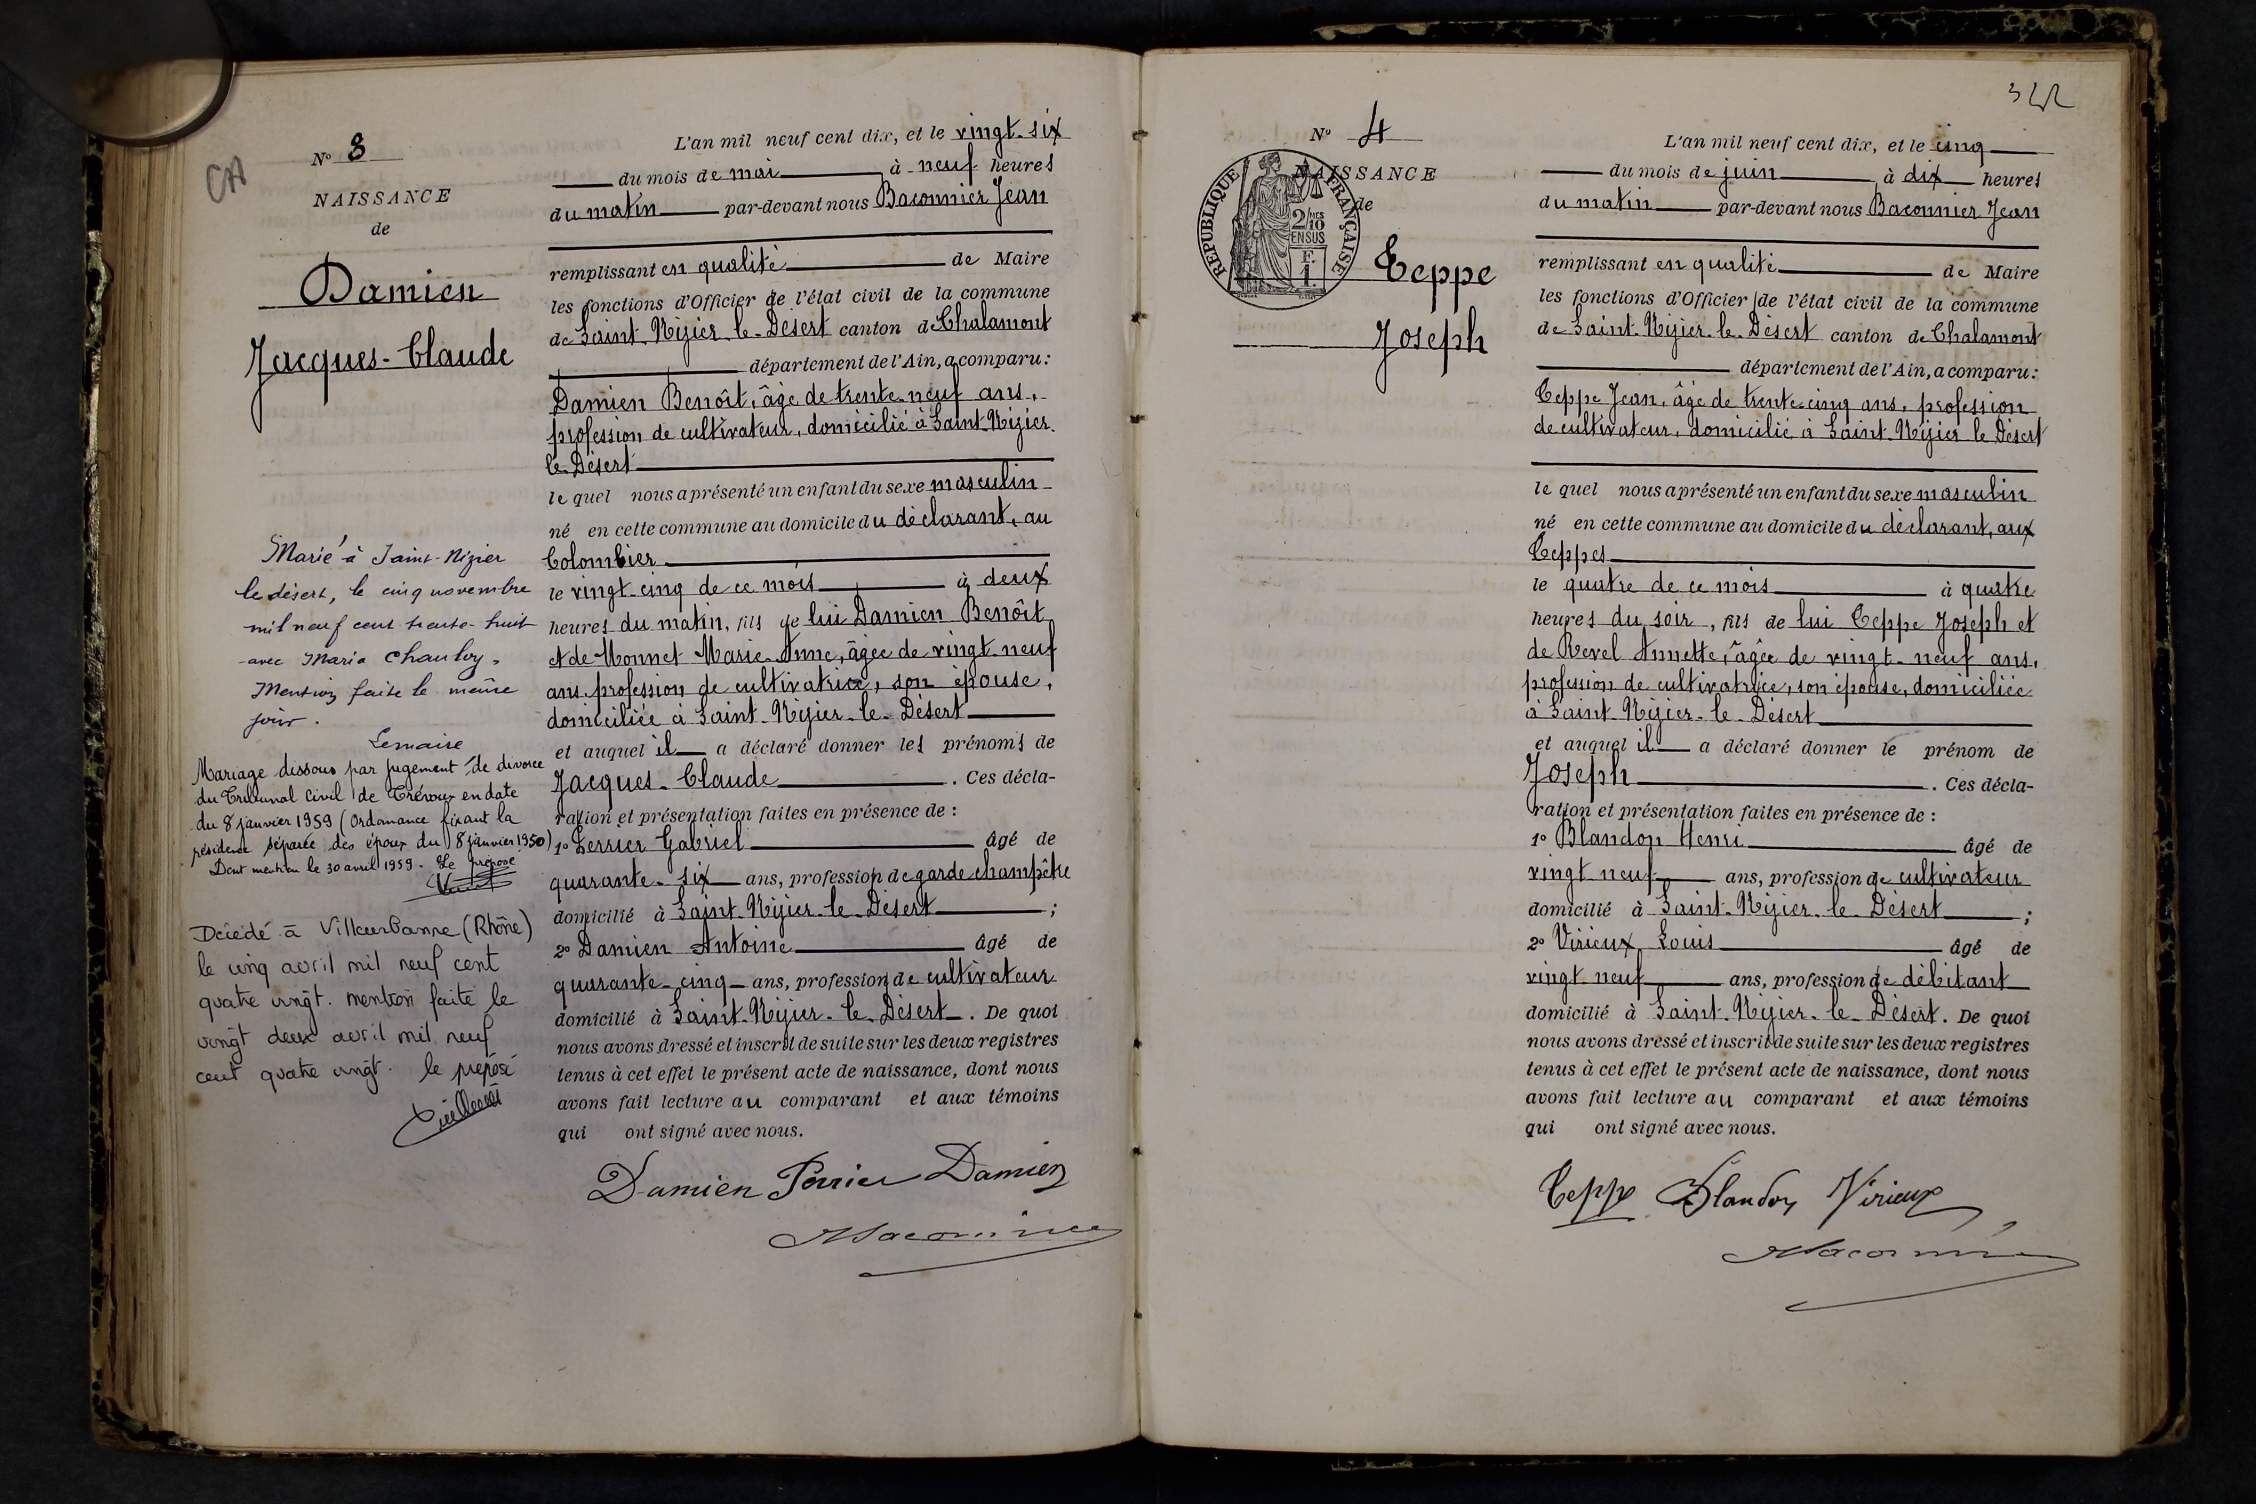 CA
N° 3
NAISSANCE
de
Damien
Jacques-Claude
Marié à Saint-Nizier
le désert, le cinq novembre
mil neuf cent trente-huit
avec Maria
Mention faite le même
jour.
Mariage dissous par jugement de divorce
du Tribunal Civil de Trévoux en date
du 8 janvier 1959 (Ordonnance fixant la
résidence séparée des époux du 8 janvier 1950)
Dont mention le 30 avril 1959. Le préposé
Décédé à Villeurbanne (Rhône)
le cinq avril mil neuf cent
quatre vingt. mention faite le
vingt deux avril mil neuf
cent quatre vingt. le préposé
L'an mil neuf cent dix, et le vingt-six
du mois de mai à neuf heures
du matin par-devant nous Baconnier Jean
remplissant en qualité de Maire
les fonctions d'Officier de l'état civil de la commune
de Saint-Nizier-le-Désert canton de Chalamont
département de l'Ain, a comparu:
Damien Benoît, âgé de trente-neuf ans,
profession de cultivateur, domicilié à Saint-Nizier
le-Désert
le quel nous a présenté un enfant du sexe masculin
né en cette commune au domicile du déclarant, au
Colombier
le vingt-cinq de ce mois à deux
heures du matin, fils de lui Damien Benoît
et de Monnet Marie-Anne, âgée de vingt-neuf
ans profession de cultivatrice, son épouse,
domiciliée à Saint-Nizier-le-Désert
et auquel il a déclaré donner les prénoms de
Jacques-Claude. Ces décla-
ration et présentation faites en présence de :
1° Perrier Gabriel âgé de
quarante-six ans, profession de garde champêtre
domicilié à Saint-Nizier-le-Désert ;
2° Damien Antoine âgé de
quarante-cinq ans, profession de cultivateur
domicilié à Saint-Nizier-le-Désert. De quoi
nous avons dressé et inscrit de suite sur les deux registres
tenus à cet effet le présent acte de naissance, dont nous
avons fait lecture au comparant et aux témoins
qui ont signé avec nous.
Damien Perrier Damien
Baconnier
342
N° 4
NAISSANCE
de
RÉPUBLIQUE FRANÇAISE
2/10
EN SUS
F.
1.
Teppe
Joseph
L'an mil neuf cent dix, et le cinq
du mois de juin à dix heures
du matin par-devant nous Baconnier Jean
remplissant en qualité de Maire
les fonctions d'Officier de l'état civil de la commune
de Saint-Nizier-le-Désert canton de Chalamont
département de l'Ain, a comparu:
Teppe Jean, âgé de trente-cinq ans, profession
de cultivateur, domicilié à Saint-Nizier le Désert
le quel nous a présenté un enfant du sexe masculin
né en cette commune au domicile du déclarant, aux
Teppes
le quatre de ce mois à quatre
heures du soir, fils de lui Teppe Joseph et
de Revel Annette, âgée de vingt-neuf ans,
profession de cultivatrice, son épouse, domiciliée
à Saint-Nizier-le-Désert
et auquel il a déclaré donner le prénom de
Joseph. Ces décla-
ration et présentation faites en présence de :
1° Blandon Henri âgé de
vingt neuf ans, profession de cultivateur
domicilié à Saint-Nizier-le-Désert ;
2° Virieux Louis âgé de
vingt neuf ans, profession de débitant
domicilié à Saint-Nizier-le-Désert. De quoi
nous avons dressé et inscrit de suite sur les deux registres
tenus à cet effet le présent acte de naissance, dont nous
avons fait lecture au comparant et aux témoins
qui ont signé avec nous.
Teppe Blandon Virieux
Baconnier